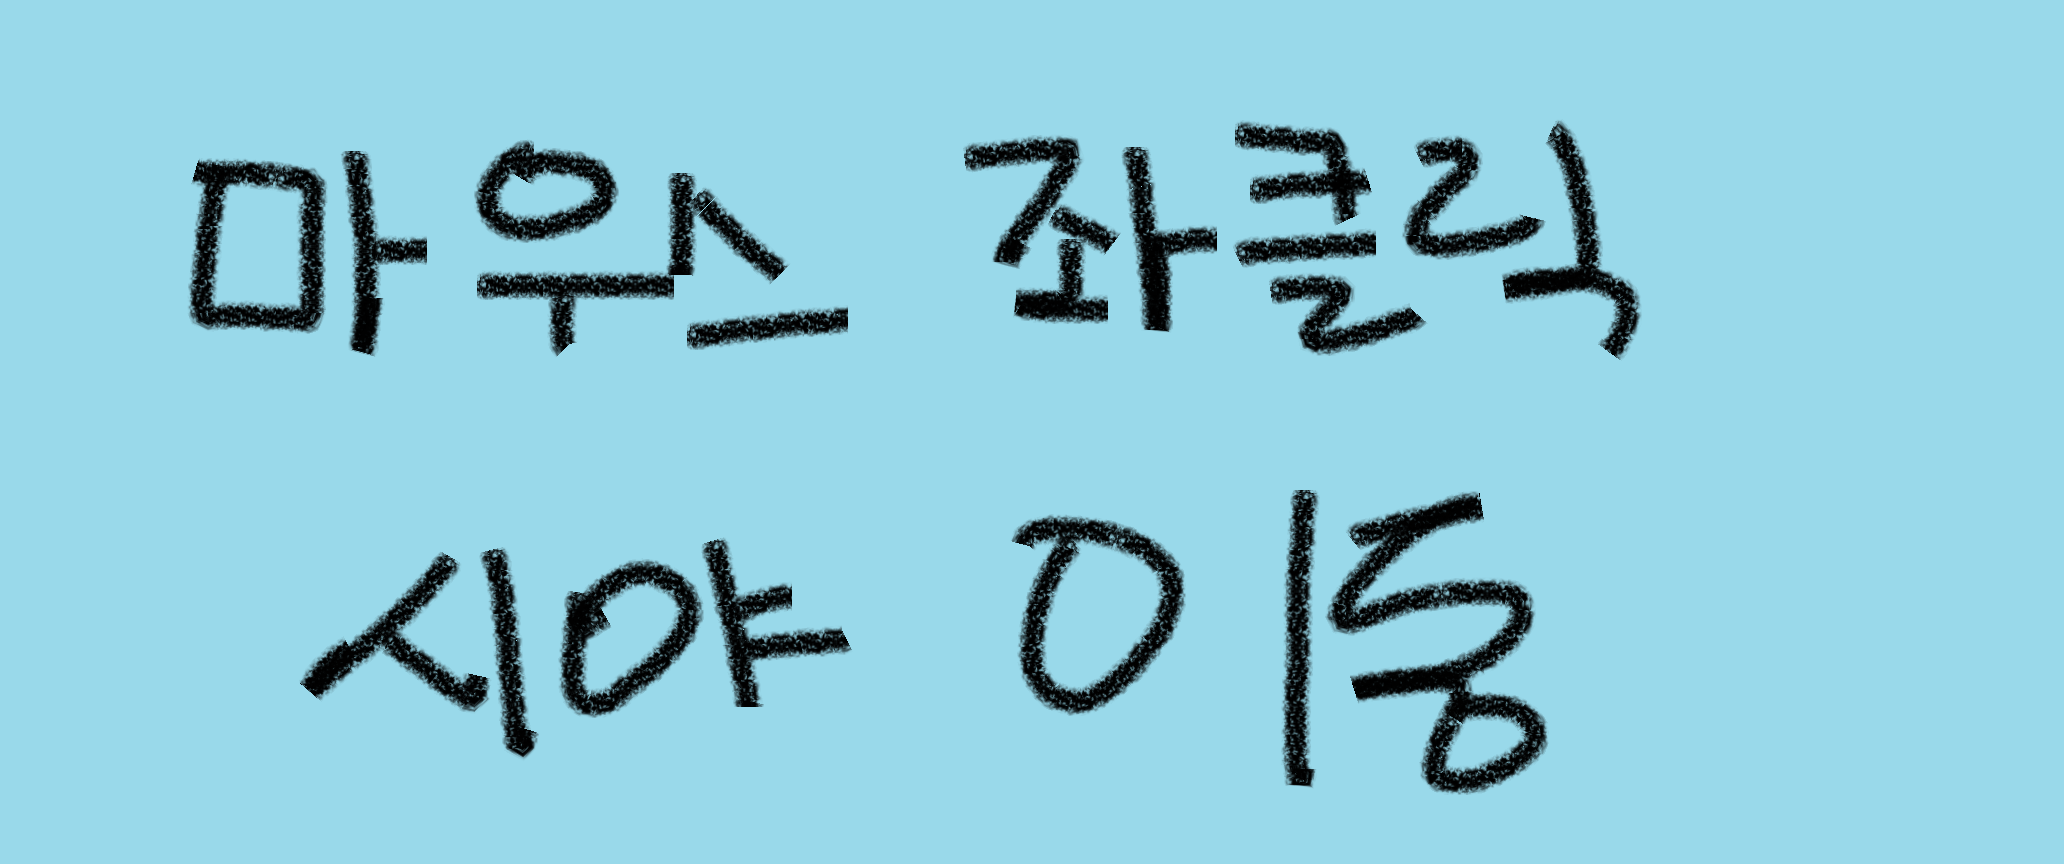 마우스 좌클릭
시야 이동